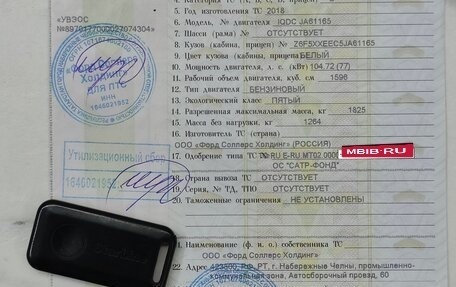 «УВЭОС»
5. Год изготовления ТС 2018
6. Модель, № двигателя IQDC JA61165
7. Шасси (рама) № ОТСУТСТВУЕТ
8. Кузов (кабина, прицеп) № Z6F5XXEEC5JA61165
9. Цвет кузова (кабины, прицепа) БЕЛЫЙ
10. Мощность двигателя, л. с. (кВт) 104,72 (77)
11. Рабочий объем двигателя, куб. см 1596
12. Тип двигателя БЕНЗИНОВЫЙ
13. Экологический класс ПЯТЫЙ
14. Разрешенная максимальная масса, кг 1825
15. Масса без нагрузки, кг 1264
16. Изготовитель ТС (страна)
ООО «Форд Соллерс Холдинг» (РОССИЯ)
17. Одобрение типа ТС № RU E-RU.MT02.
MBIB-RU
ОС "САТР-ФОНД"
18. Страна вывоза ТС ОТСУТСТВУЕТ
19. Серия, № ТД, ТПО ОТСУТСТВУЕТ
20. Таможенные ограничения НЕ УСТАНОВЛЕНЫ
21. Наименование (ф. и. о.) собственника ТС
ООО «Форд Соллерс Холдинг»
22. Адрес 423800, РФ, РТ, г. Набережные Челны, промышленно-
коммунальная зона, Автосборочный проезд, 60
«Форд Соллерс
Холдинг»
ДЛЯ ПТС
1646021952
Утилизационный сбор
1646021952